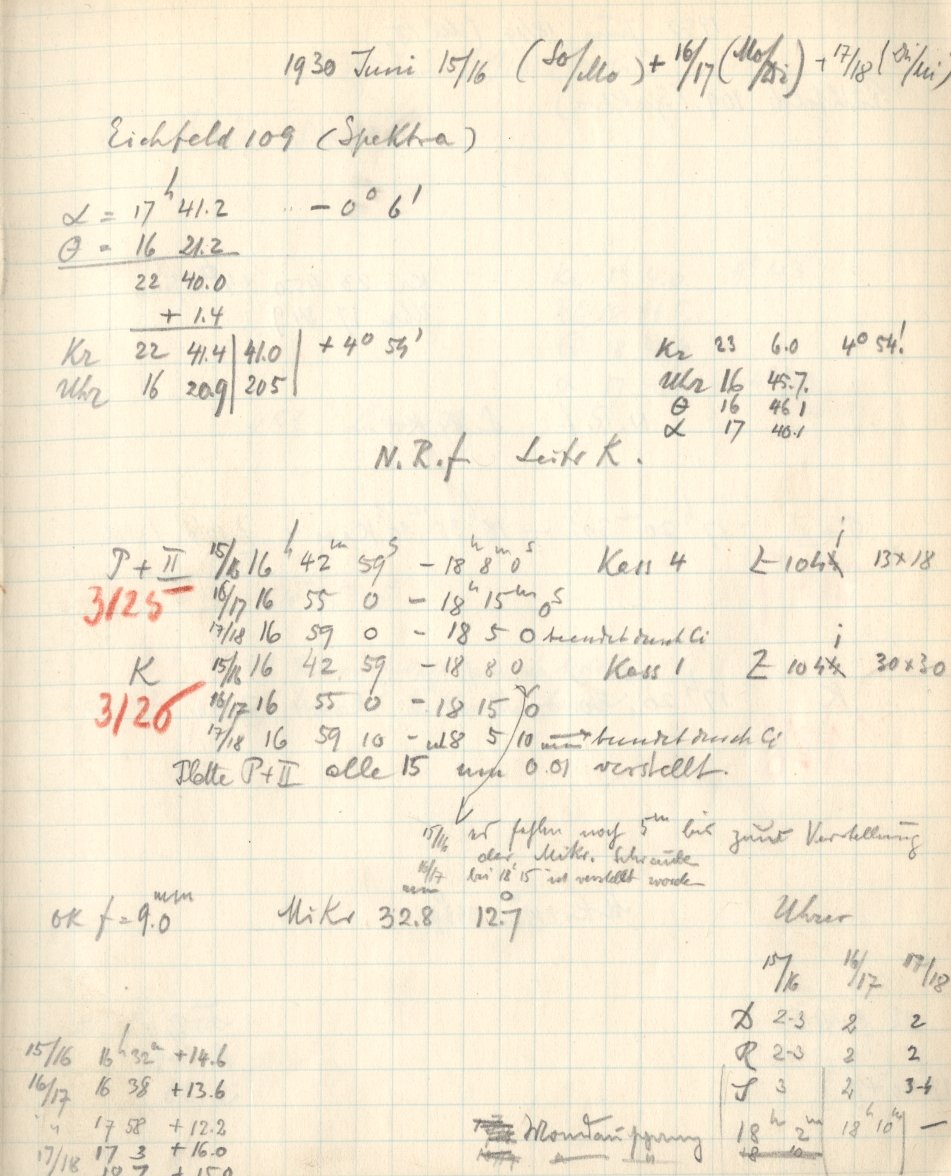 1930 Juni 15/16 (So/Mo) + 16/17 (Mo/Di) + 17/18 (Di/Mi)
Eichfeld 109 (Spektra)
α = 17h 41.2 - 0° 6'
θ = 16 21.2
22 40.0
+ 1.4
Kr 22 41.4 | 41.0 | + 4° 54'
Uhr 16 20.9 | 205 |
Kr 23 6.0 4° 54'
Uhr 16 45.7
θ 16 46 1
α 17 40.1
N.R.f Leitr K.
P + II 15/16 16h 42m 59s - 18h 8m 0s Kass 4 Z 104 i 13 x 18
3125 16/17 16 55 0 - 18h 15m 0s
17/18 16 59 0 - 18 5 0 beendet durch Ci
K 15/16 16 42 59 - 18 8 0 Kass 1 Z 104 i 30 x 30
3126 16/17 16 55 0 - 18 15 0
17/18 16 59 10 - 18 5 10 beendet durch Ci
Platte P + II alle 15 um 0.01 verstellt.
15/16 es fehlen noch 5m bis zur Verstellung
der Mikr. Schraube
16/17 bei 18 15 ist verstellt worden
OK f = 9.0 mm Mikr 32.8 12.°7 Uhren
15/16 16/17 17/18
D 2-3 2 2
R 2-3 2 2
S 3 2 3-4
Mondaufgang 18h 2m 18h 10m —
18 10
15/16 16h 32m + 14.6
16/17 16 38 + 13.6
" 17 58 + 12.2
17/18 17 3 + 16.0
18 7 + 15.0